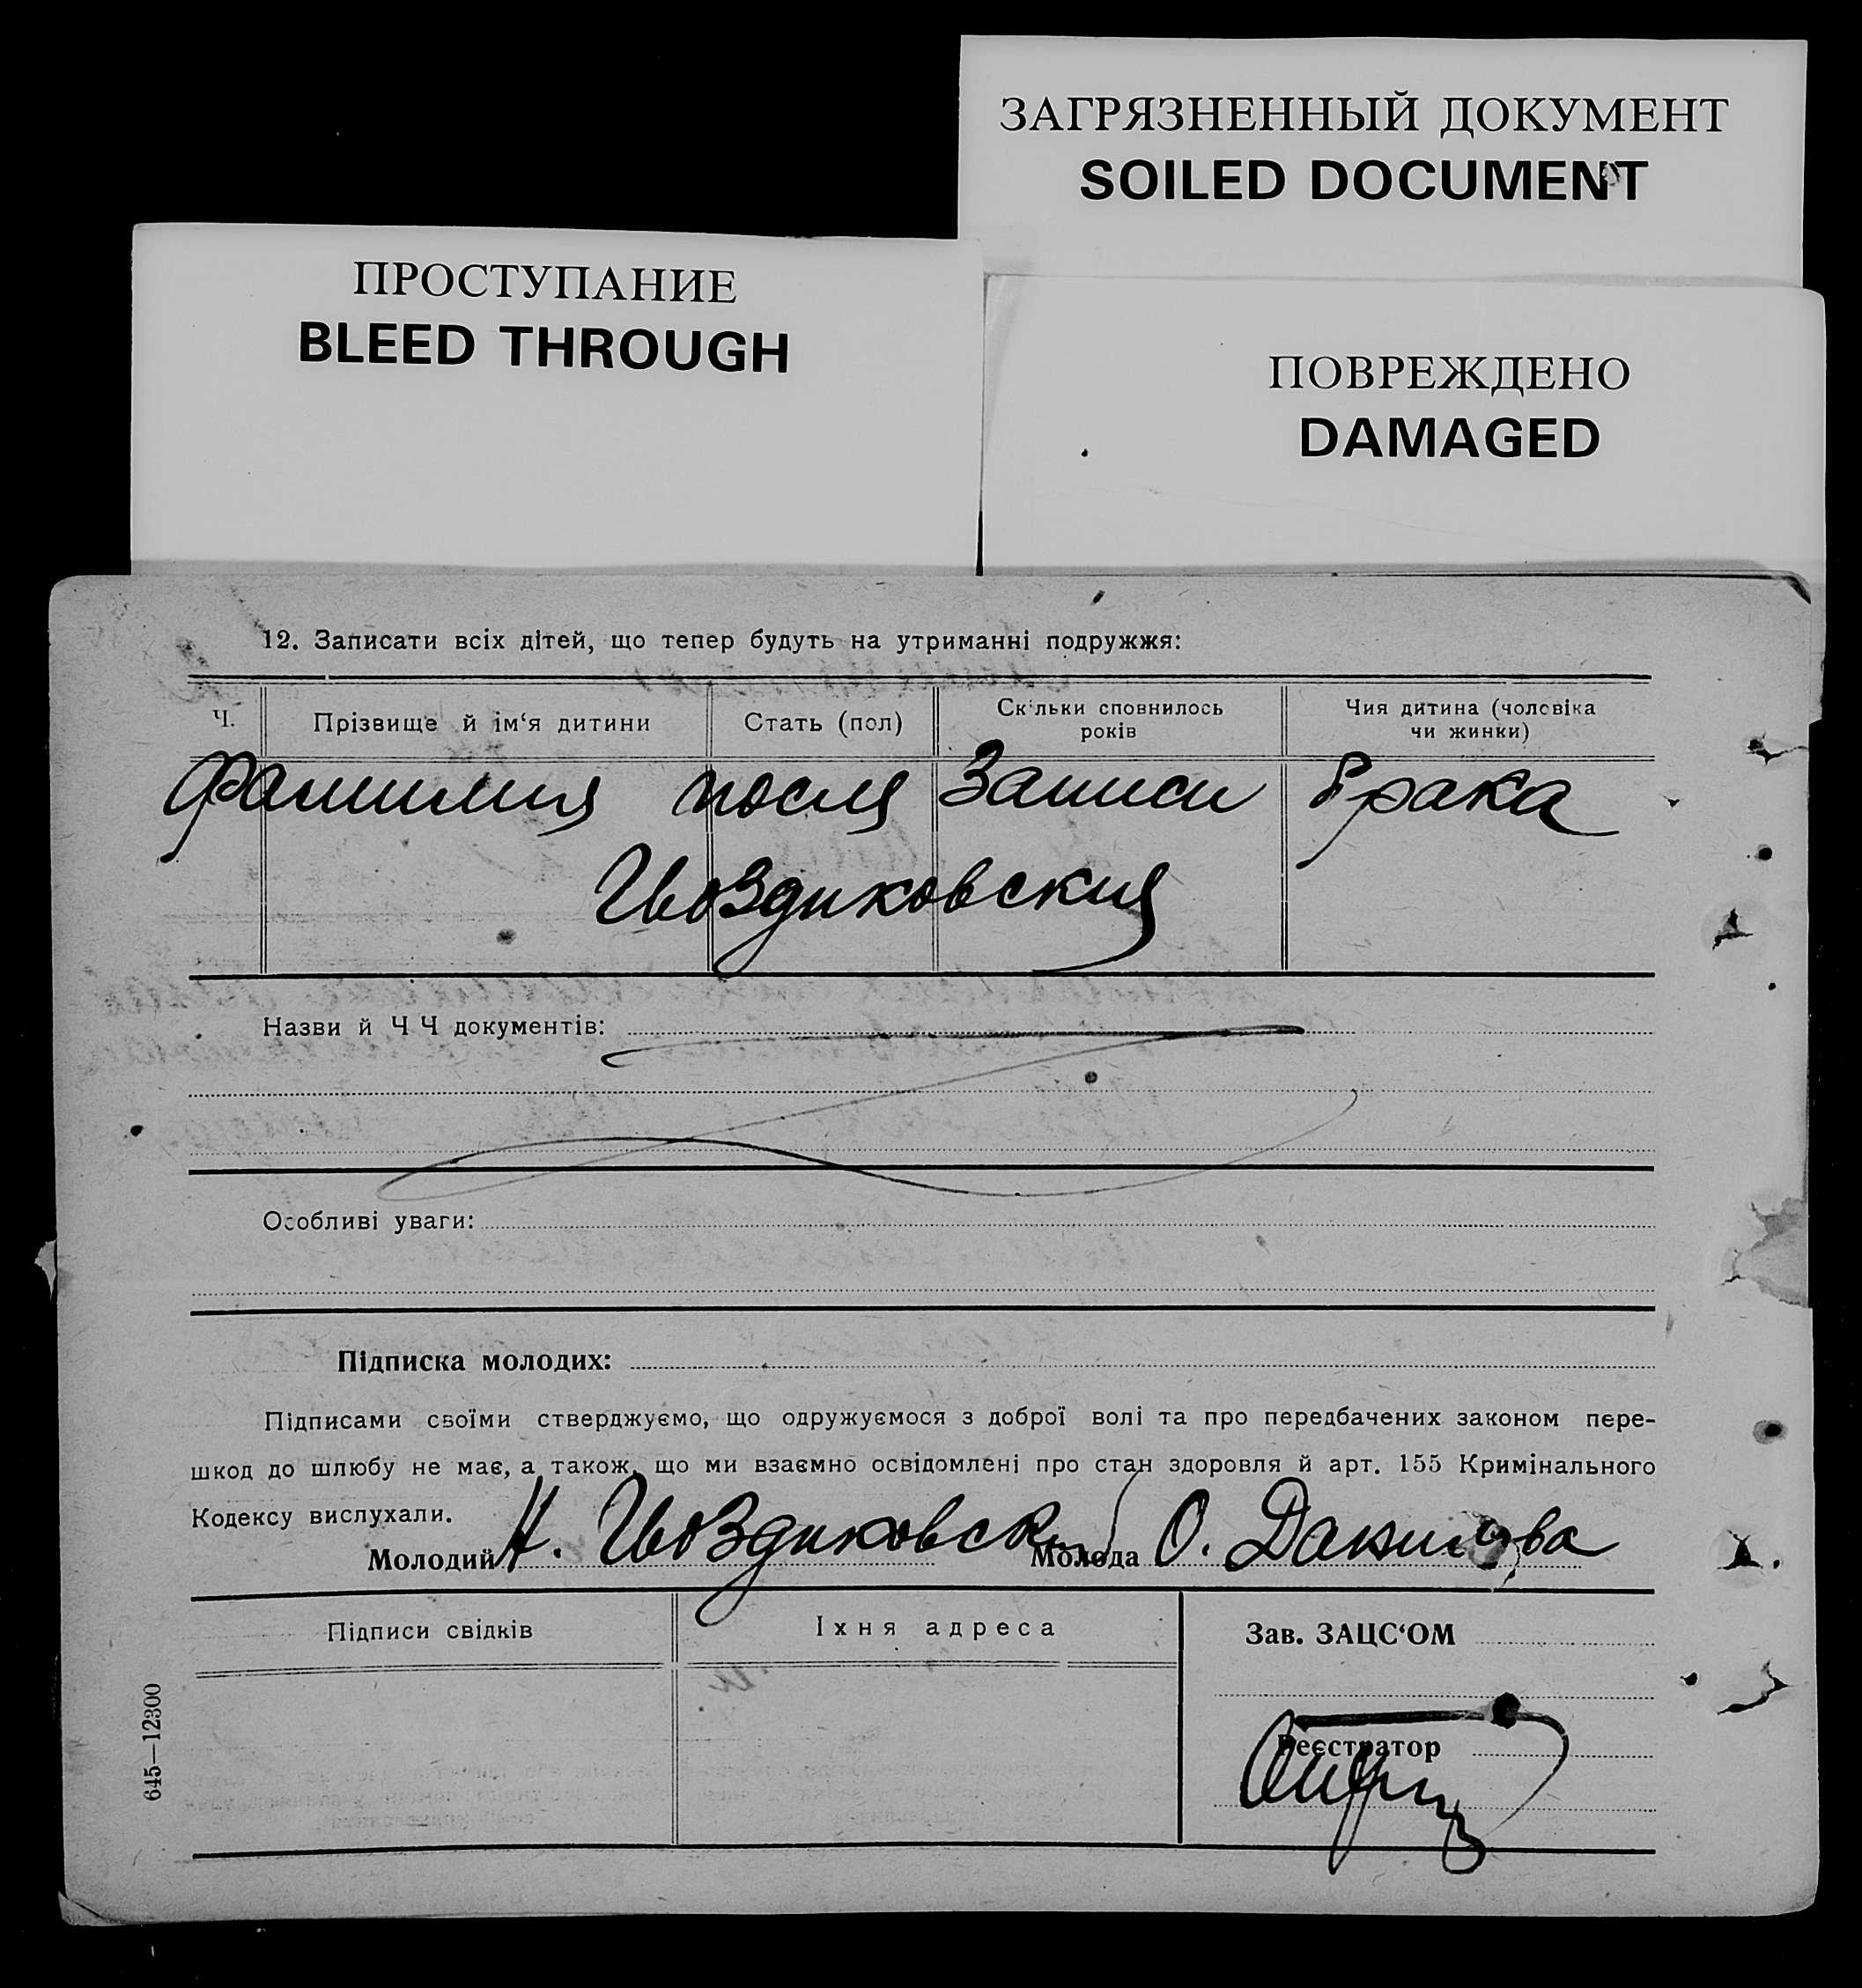 ЗАГРЯЗНЕННЫЙ ДОКУМЕНТ
SOILED DOCUMENT
ПРОСТУПАНИЕ
BLEED THROUGH
ПОВРЕЖДЕНО
DAMAGED
12. Записати всіх дітей, що тепер будуть на утриманні подружжя:
Ч. Прізвище й ім‘я дитини Стать (пол) Скільки сповнилось років Чия дитина (чоловіка чи жинки)
Фамилия после записи брака
Гвоздиковский
Назви й Ч Ч документів:
Особливі уваги:
Підписка молодих:
Підписами своїми стверджуємо, що одружуємося з доброї волі та про передбачених законом пере-
шкод до шлюбу не має, а також, що ми взаємно освідомлені про стан здоровля й арт. 155 Кримінального
Кодексу вислухали.
Молодий Н. Гвоздиковск Молода О. Данилова
Підписи свідків Їхня адреса Зав. ЗАЦС‘ОМ
Реєстратор
645—12300